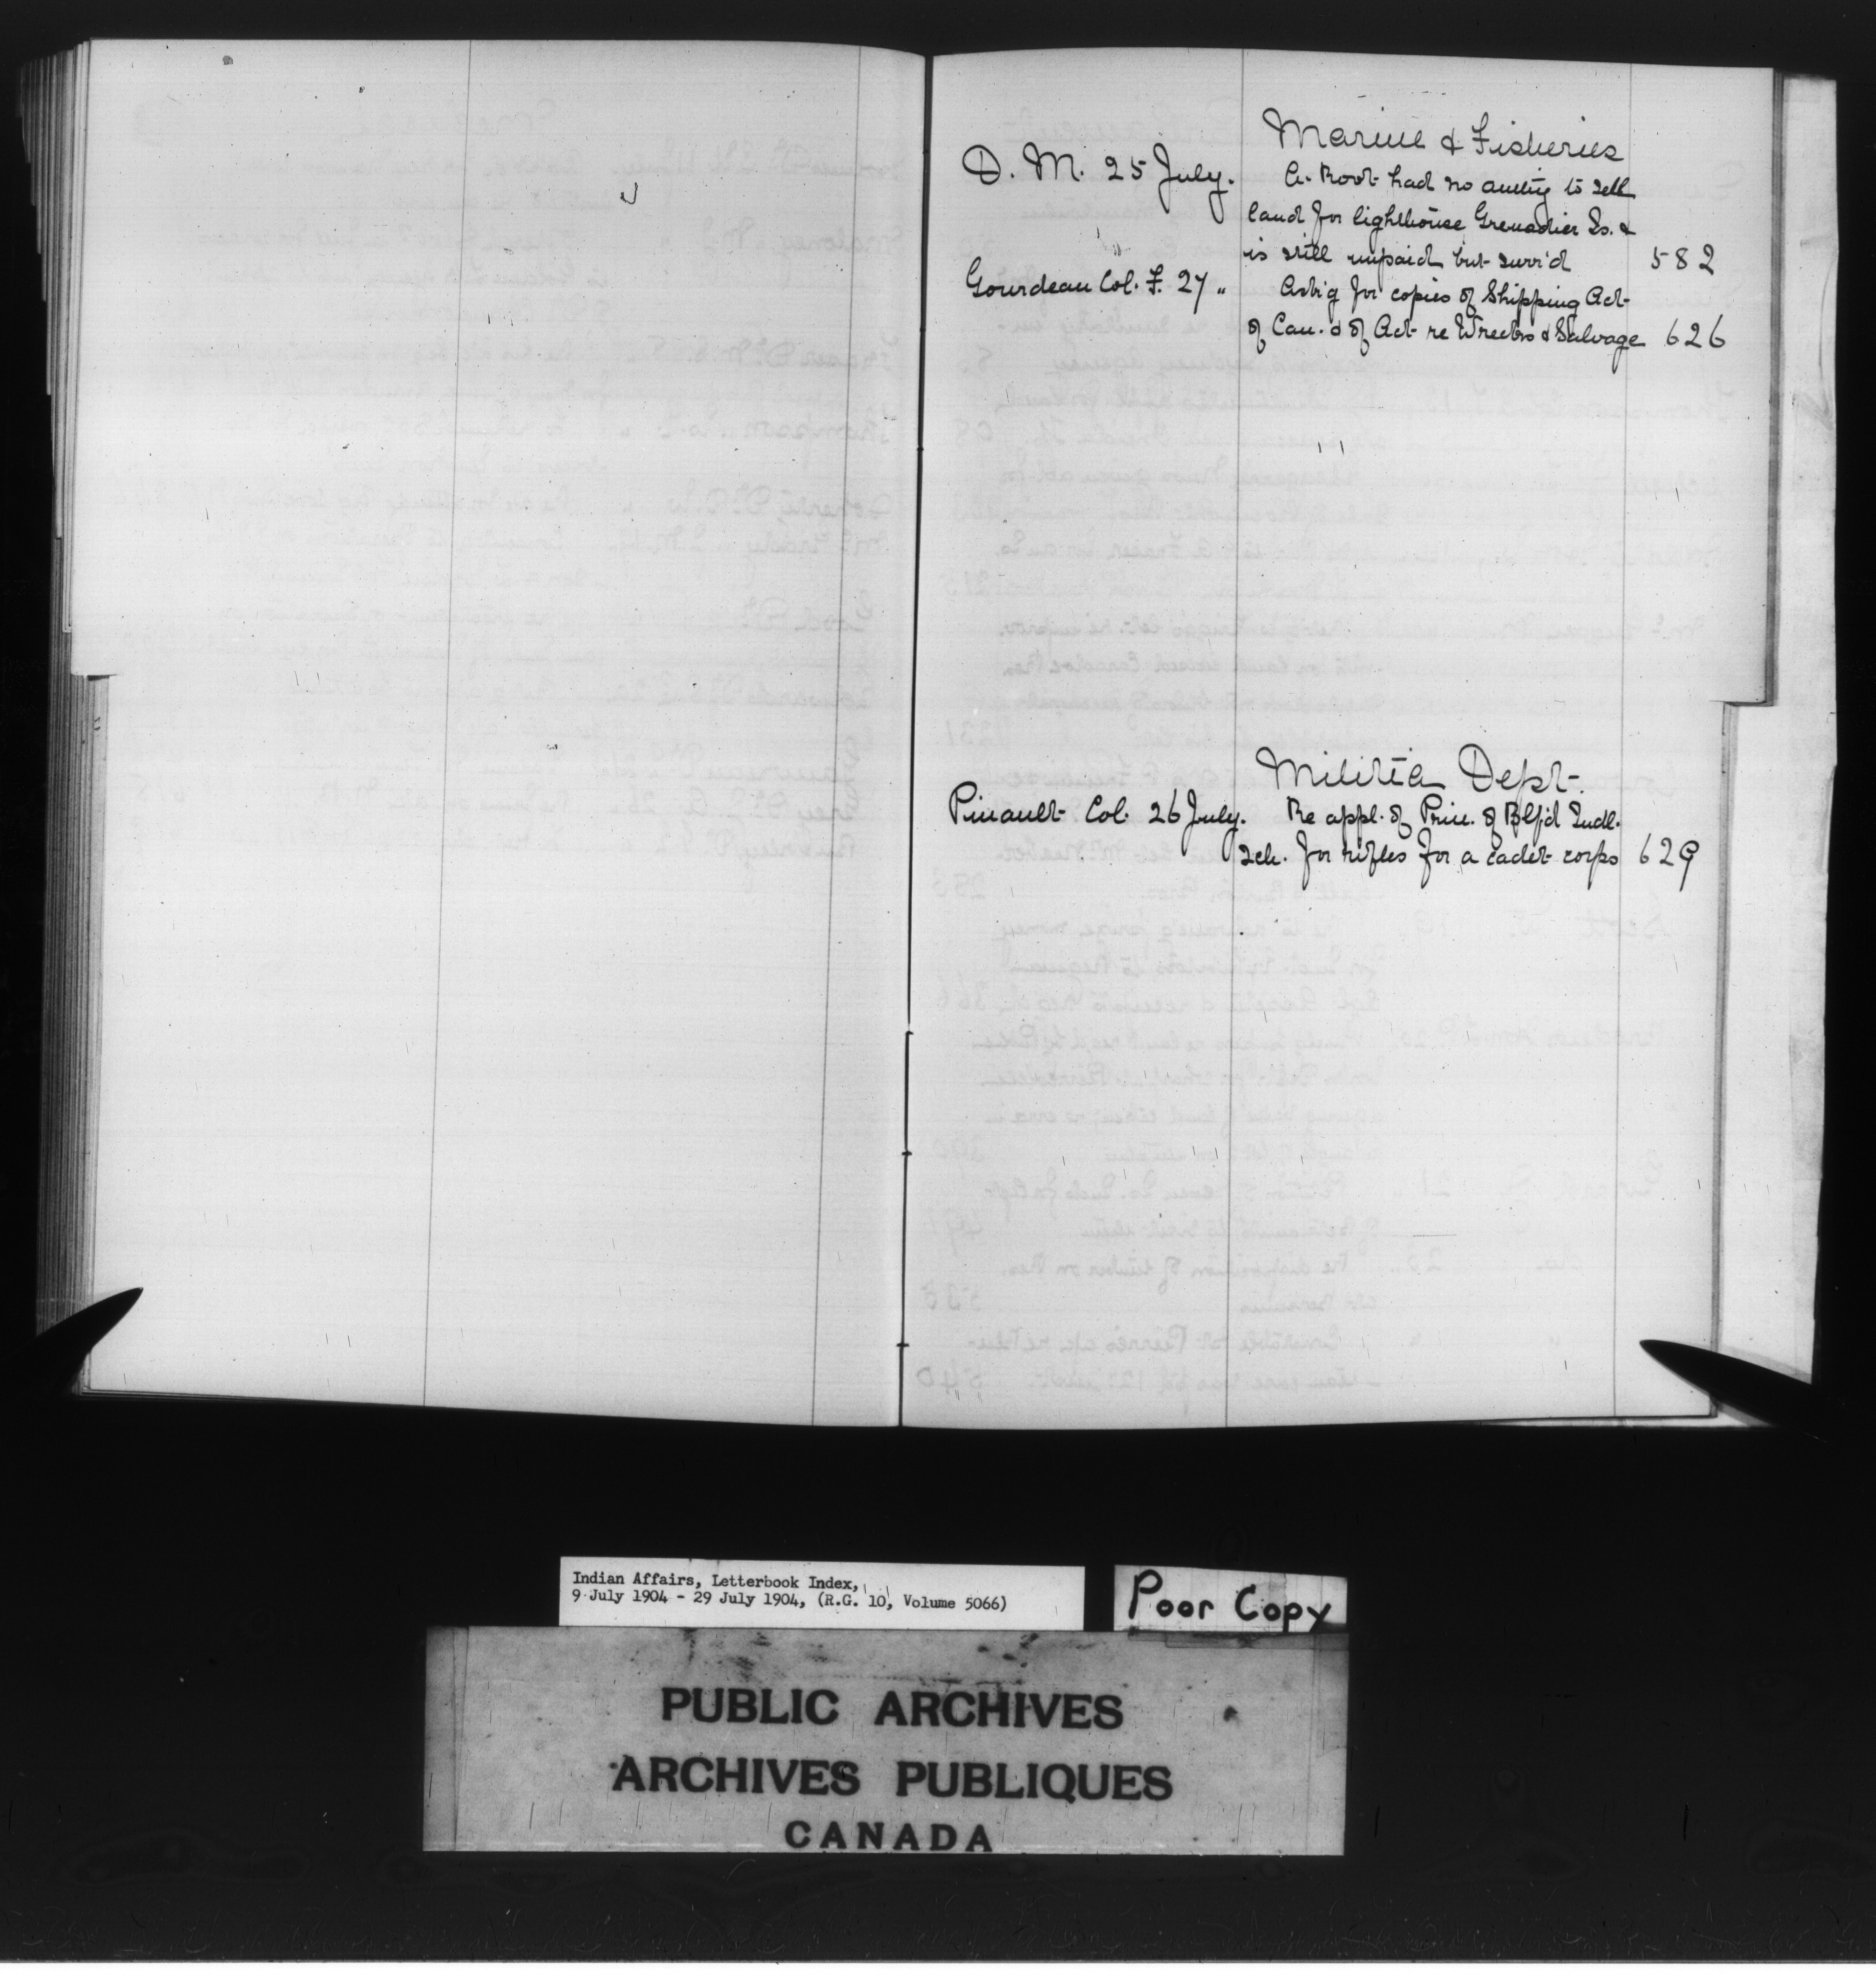 Marine & Fisheries
D. M. 25 July. A. Root had no authy to sell
land for lighthouse Grenadier Is. &
is still unpaid but surr'd 582
Gourdeau Col. F. 27 " Ask'g for copies of Shipping Act
of Can. & of Act re Wrecks & Salvage 626
Militia Dept.
Pinault Col. 26 July. Re appl. of Prin. of Btf'd Indl.
Sch. for rifles for a cadet corps 629
Indian Affairs, Letterbook Index,
9 July 1904 - 29 July 1904, (R.G. 10, Volume 5066)
Poor Copy
PUBLIC ARCHIVES
ARCHIVES PUBLIQUES
CANADA